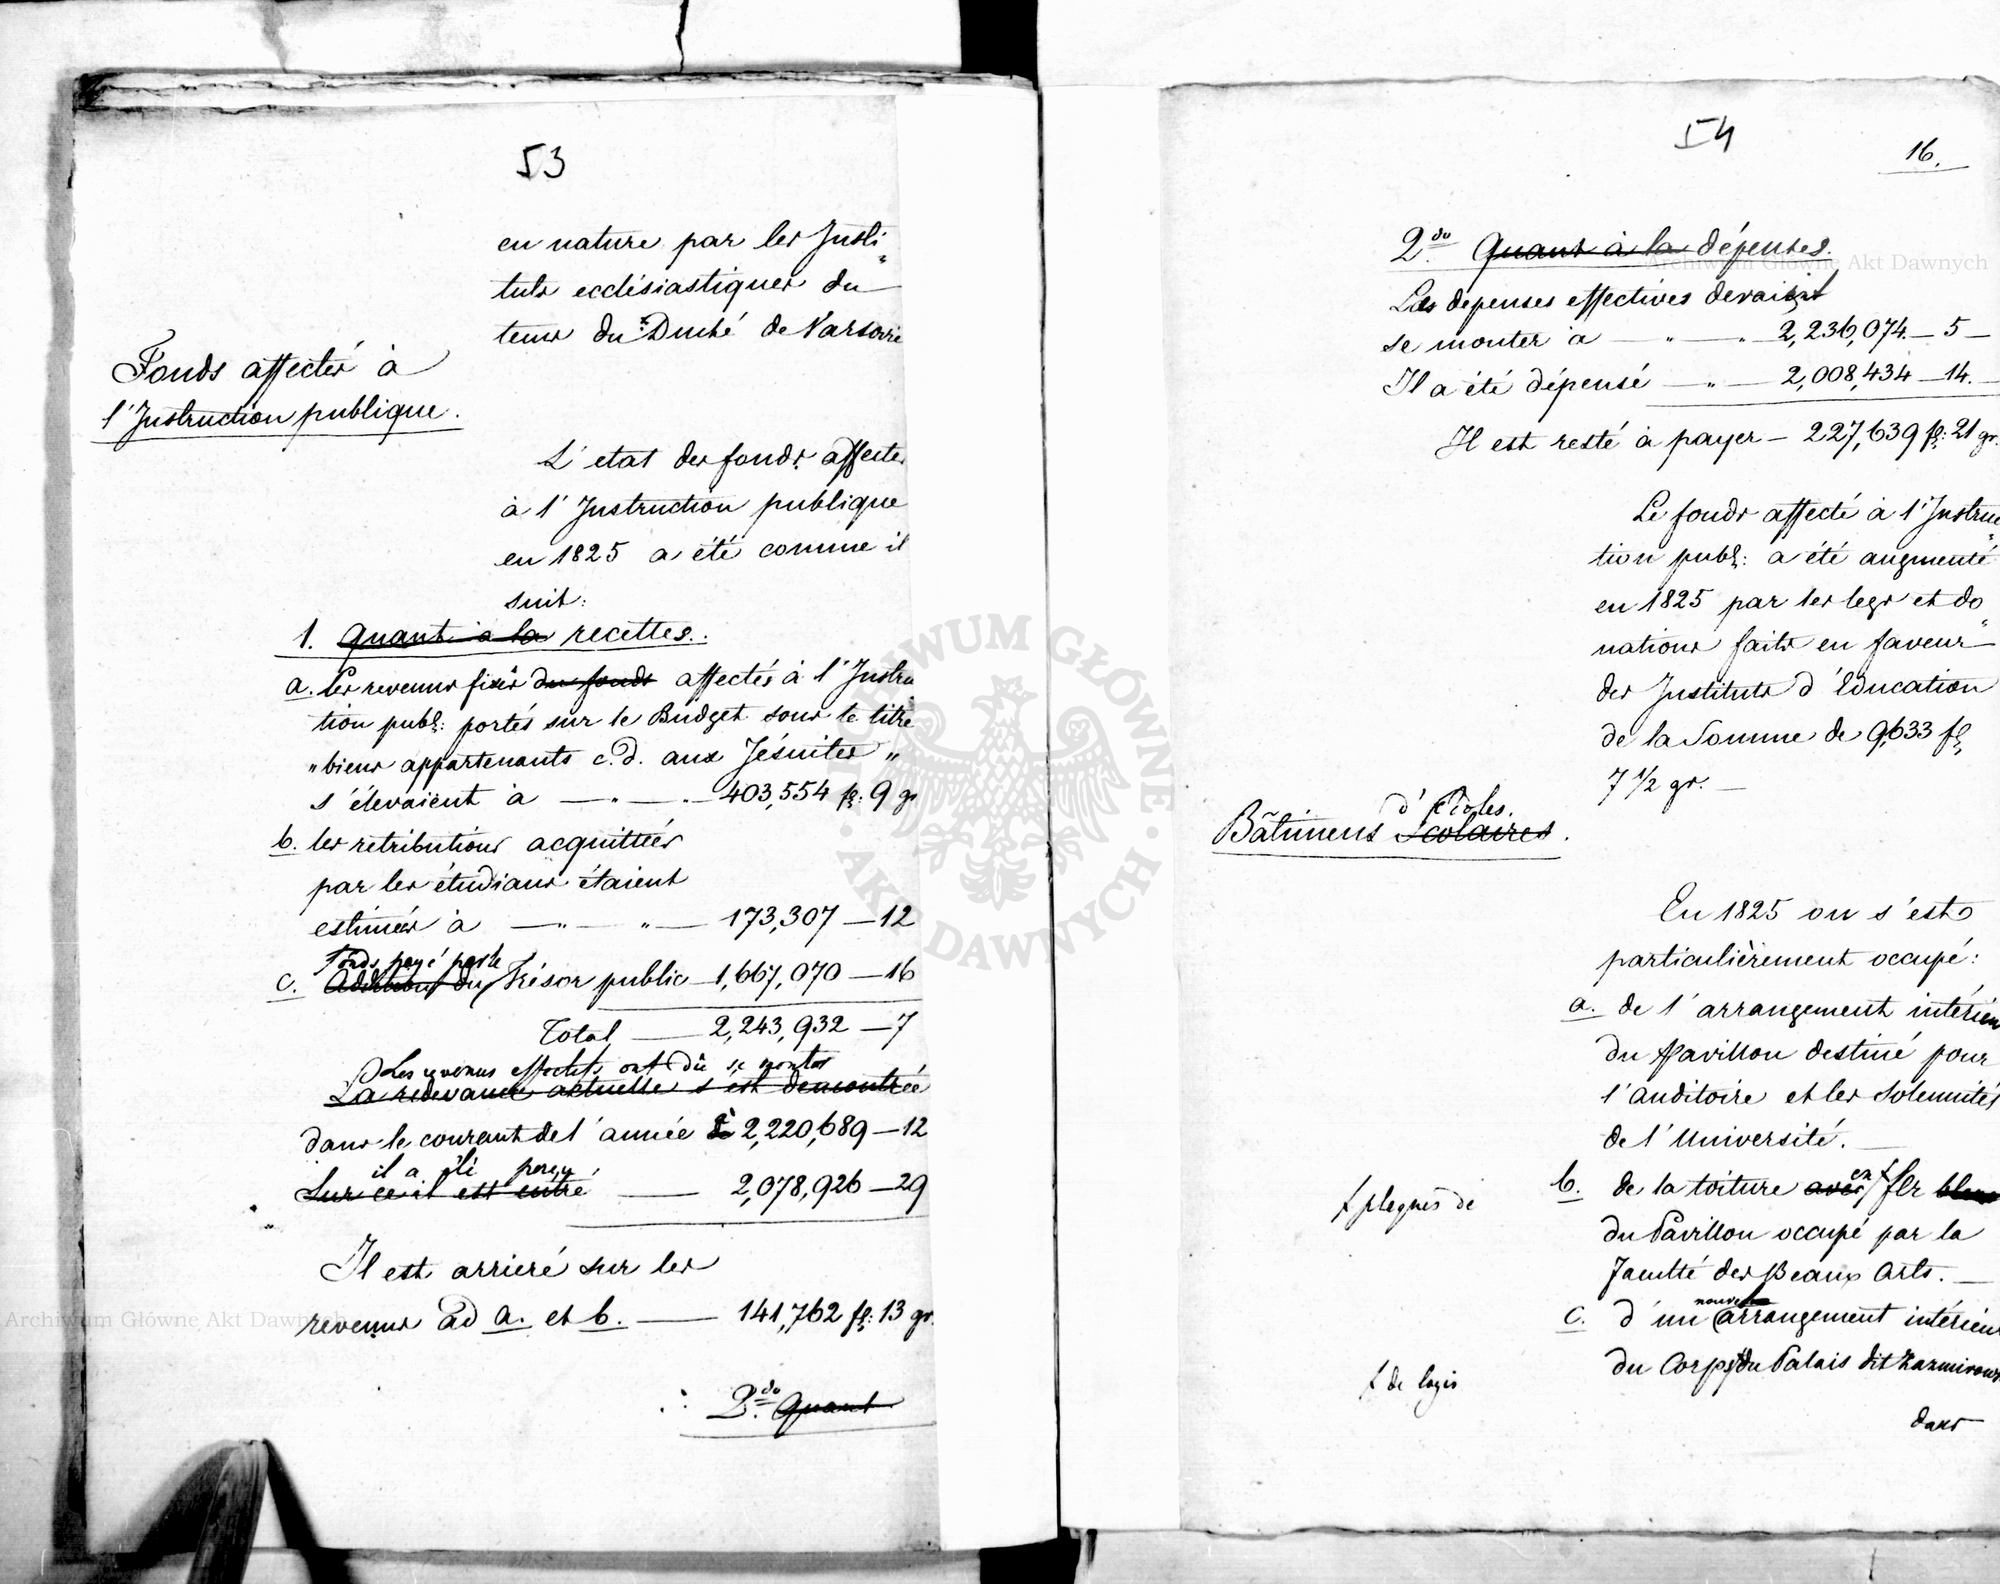 53
en nature par les Insti
tuts ecclésiastiques du
tems du Duché de Varsovie
Fonds affectés à
l'Instruction publique.
L'etat des fonds affectés
à l'Instruction publique
en 1825 a été comme il
suit:
1. Quant à la recettes.
a. les revenus fixés du fonds affectés à l'Instru
tion publ: portés sur le Budget sous le titre
"biens appartenants c.d. aux Jésuites"
s'élevaient à — " — " — 403,554 fl: 9 gr
b. les retributions acquittées
par les étudians étaient
estimées à — " — " — 173,307 — 12
Fonds payé par le
c. du Trésor public — 1,667,070 — 16
Total — 2,243,932 — 7
Les revenus effectifs ont dû se monter
La redevance actuelle s'est demontrée
dans le courant de l'année à 2,220,689 — 12
il a été perçu
Sur ce il est entré — 2,078,926 — 29
Il est arrieré sur les
revenus ad a. et b. — 141,762 fl: 13 gr.
2do. Quant
54
16.
2do. Quant à la dépenses.
Les depenses effectives devaient
se monter à — " — " 2,236,074. — 5 —
Il a été dépensé — " — 2,008,434 — 14. —
Il est resté à payer — 227,639 fl: 21 gr.
Le fonds affecté à l'Instruc
tion publ: a été augmenté
en 1825 par les legs et do
nations faits en faveur
des Instituts d'Education
de la Somme de 9,633 fl,
7 1/2 gr. —
d'Ecoles.
Bâtimens Scolaires.
En 1825 on s'est
particulièrement occupé:
a. de l'arrangement intérieu
du Pavillon destiné pour
l'auditoire et les Solennités
de l'Université. —
en
b. de la toiture avec fer
plaques de
du Pavillon occupé par la
Faculté des Beaux Arts. —
nouvel
c. d'un arrangement intérieu
du Corps du Palais dit Kazmirows
de logis
dans
Archiwum Główne Akt Dawnych
Archiwum Główne Akt Dawnych
ARCHIWUM GŁÓWNE · AKT DAWNYCH ·